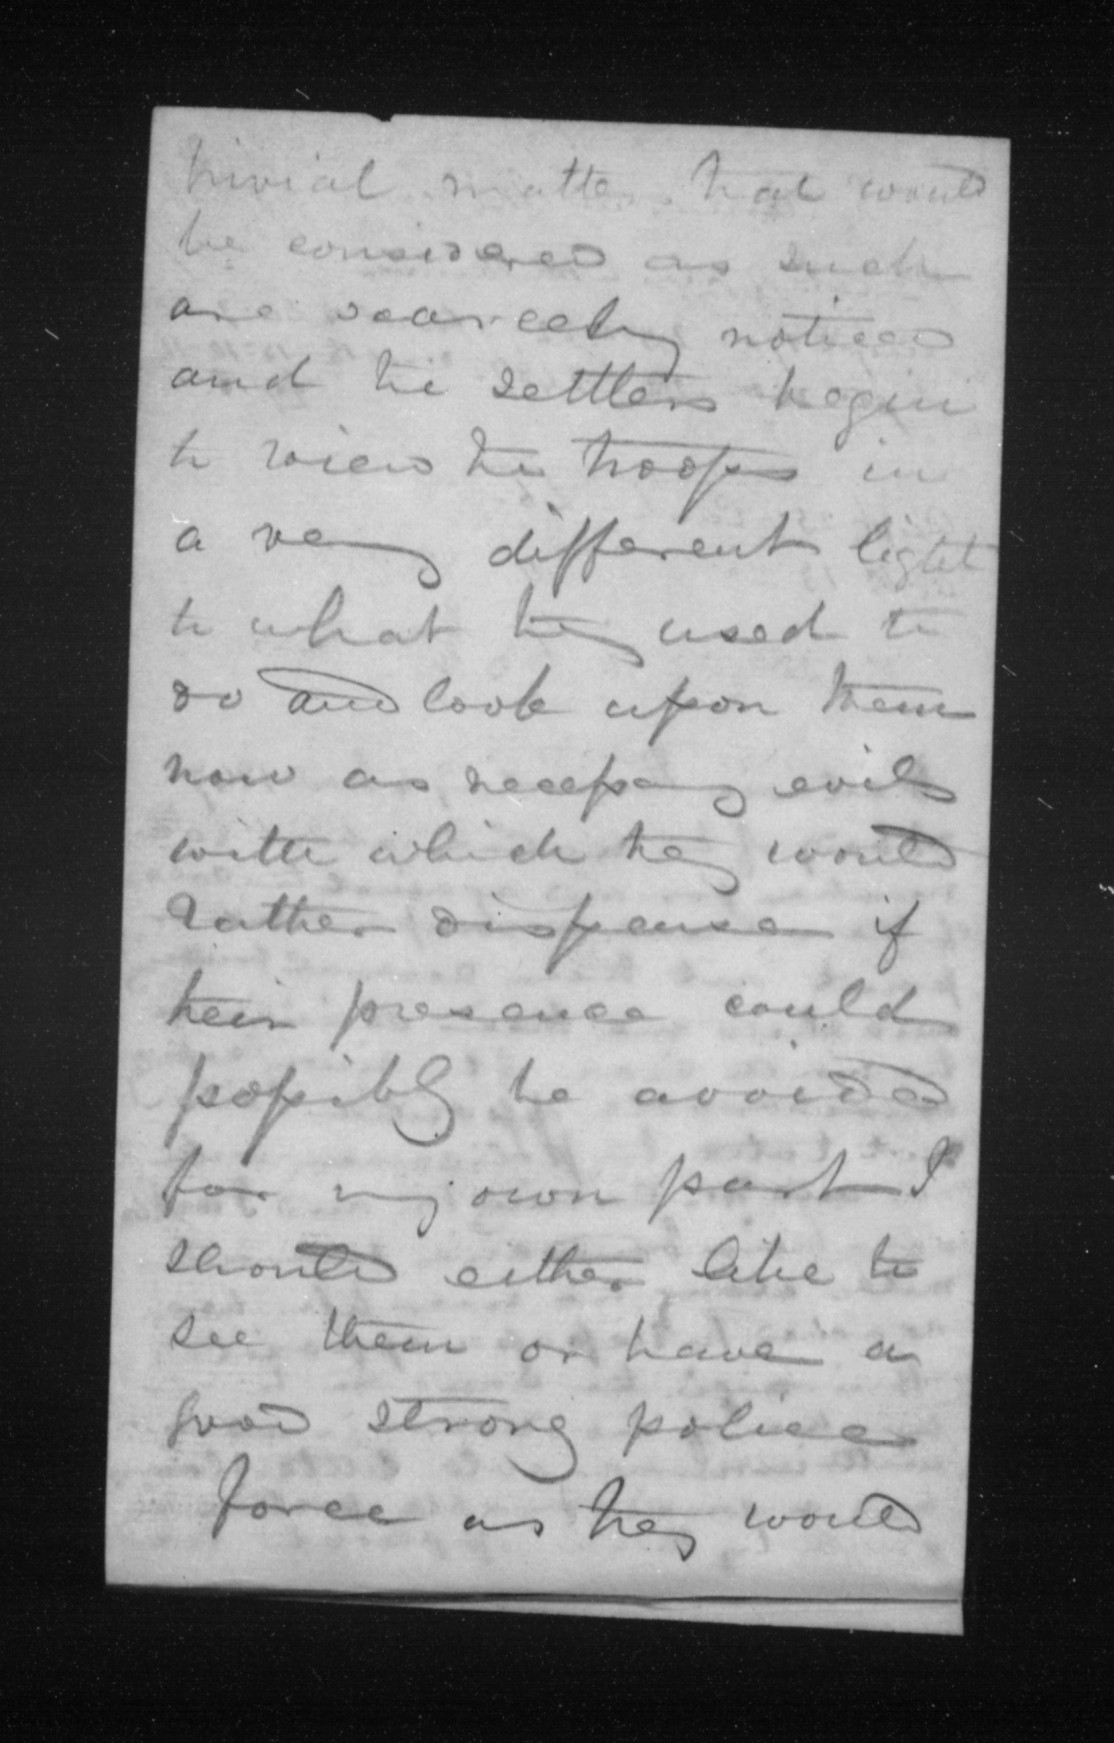 trivial matter that would
be considered as such
are scarcely noticed
and the settlers begin
to view the troops in
a very different light
to what they used to
do and look upon them
now as necessary evils
with which they would
rather dispense if
their presence could
possibly be avoided
for my own part I
should either like to
see them or have a
good strong police
force as they would